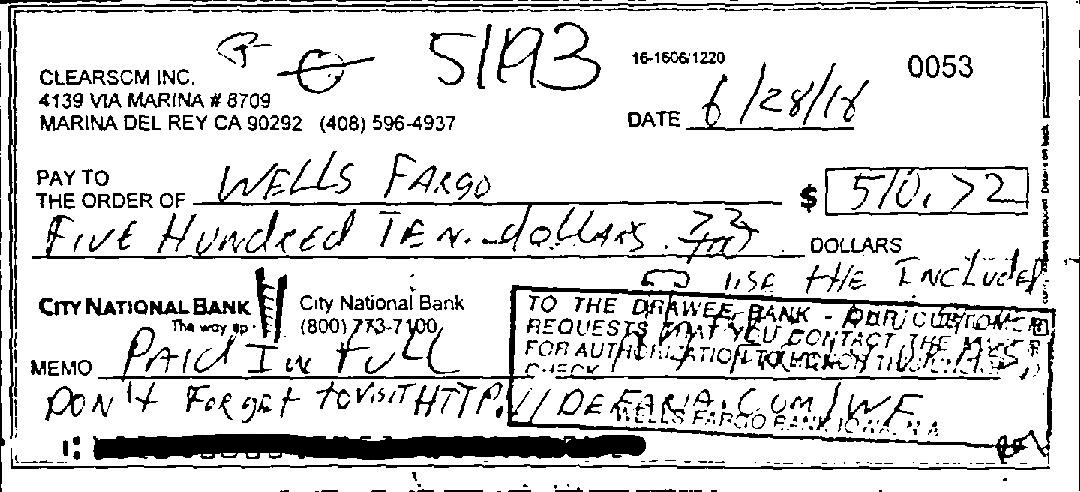 5193
16-1606/1220
0053
CLEARSCM INC.
4139 VIA MARINA # 8709
MARINA DEL REY CA 90292 (408) 596-4937
DATE 6/28/18
PAY TO
THE ORDER OF WELLS FARGO
$ 510.72
FIVE HUNdREEd TEN. dollARS. 72/100 DOLLARS
USE tHE INCLUdEd
CITY NATIONAL BANK
The way up.
City National Bank
(800) 773-7100
TO THE DRAWEE BANK - OUR CUSTOMER
REQUESTS THAT YOU CONTACT THE MAKER
FOR AUTHORIZATION TO HONOR THIS
CHECK
WELLS FARGO BANK IOWA, N A
MEMO PAId IN FULL
DON't FORgEt toVISIT HTTP://DEFARIA.COM/WF